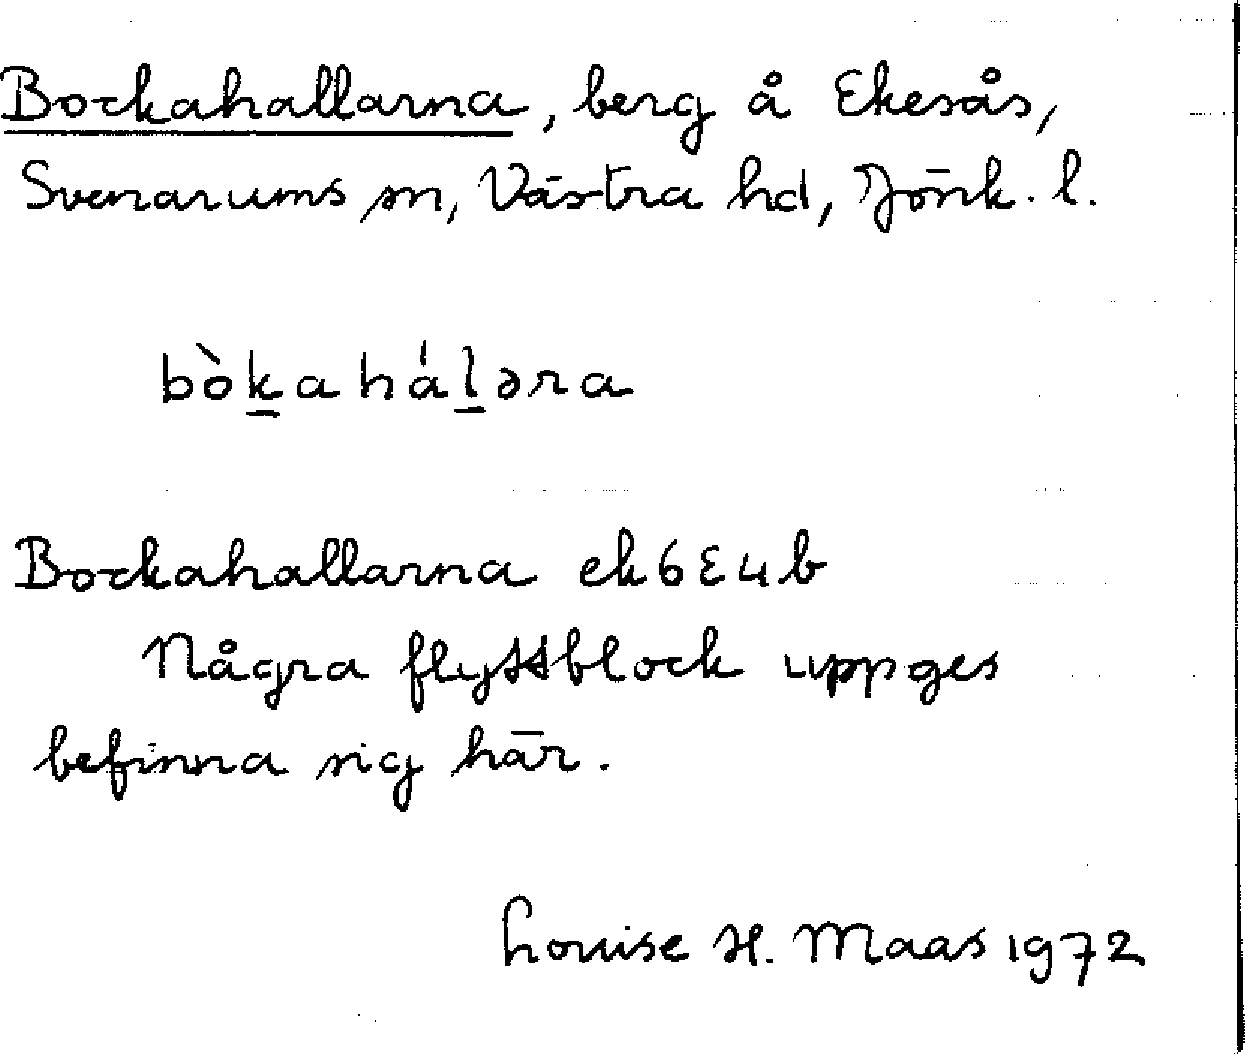 Bockahallarna, berg å Ekesås,
Svenarums sn, Västra hd, Jönk. l.
bòk̲ahál̲əra
Bockahallarna ek 6E4b
Några flyttblock uppges
befinna sig här.
Louise H. Maas 1972